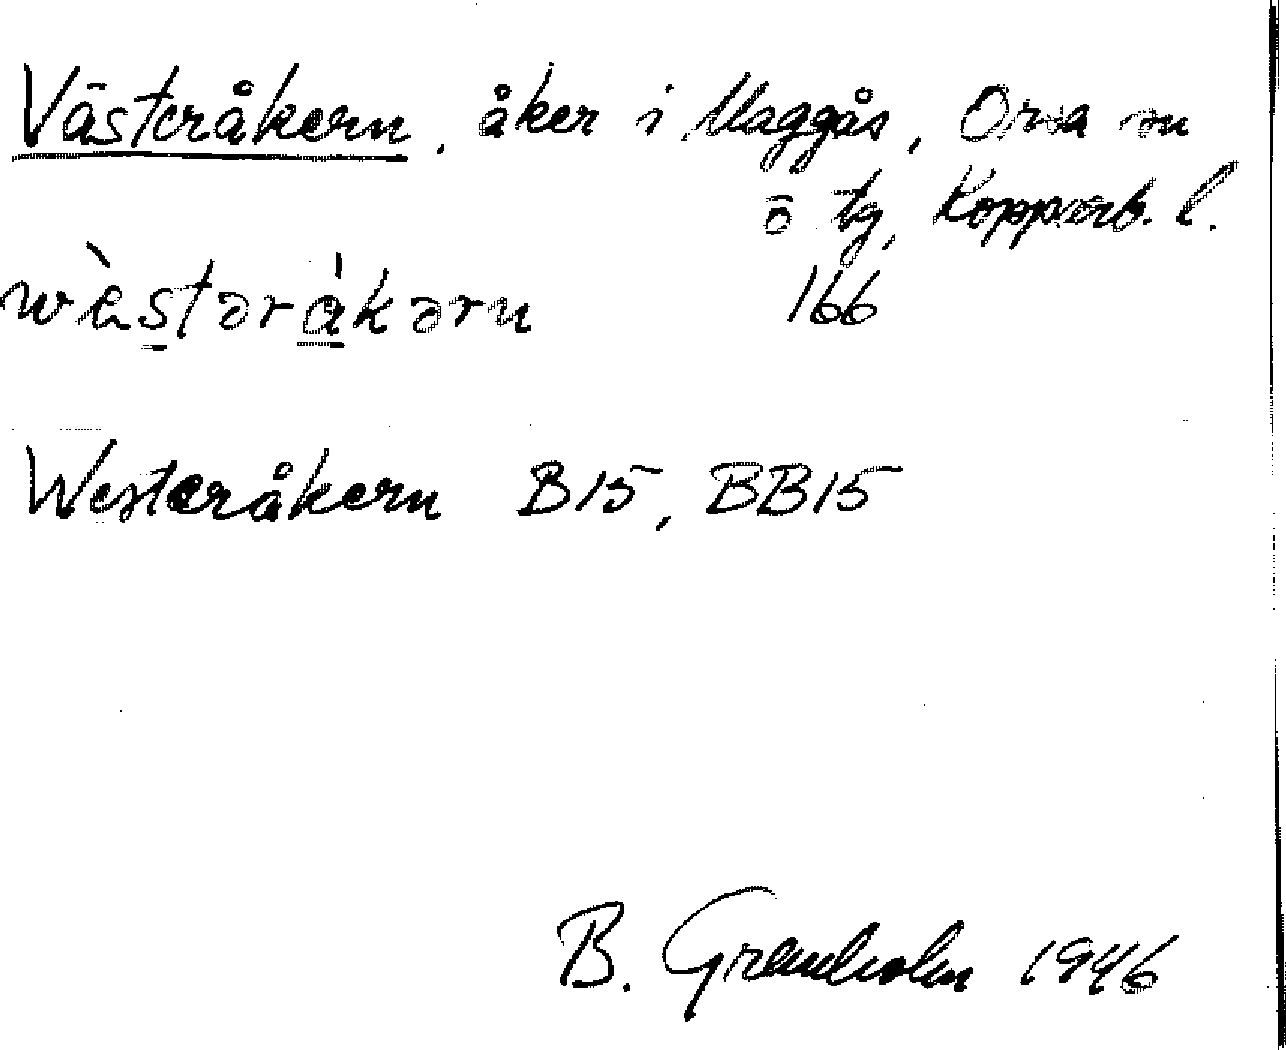 Västeråkern, åker i Maggås, Orsa sn
ö tg, Kopparb. l.
wèstəràkərn 166
Westeråkern B15, BB15
B. Granholm 1946